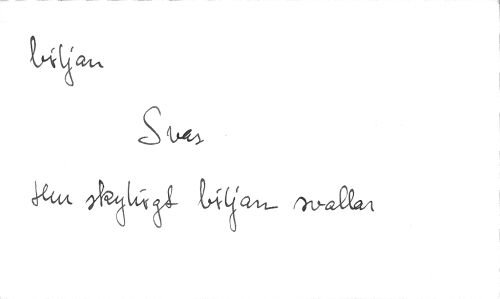 böljan
Svas
Hur skyhögt böljan svallar